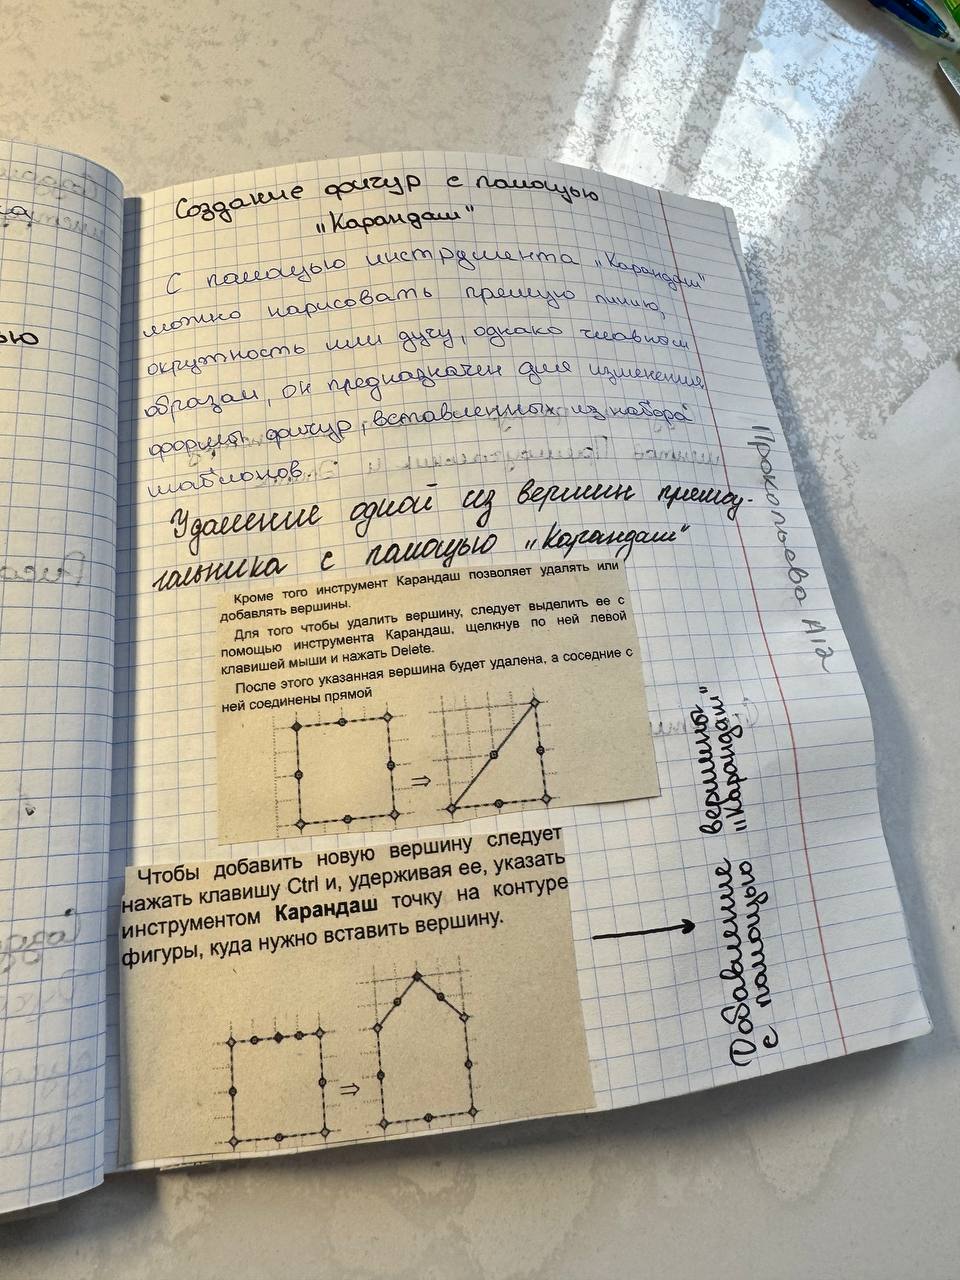 Создание фигур с помощью
„Карандаш"
С помощью инструмента „Карандаш"
можно нарисовать прямую линию,
окружность или дугу, однако главным
образом, он предназначен для изменения
формы фигур, вставленных из набора
шаблонов.
Удаление одной из вершин прямоу-
гольника с помощью „Карандаш"
Кроме того инструмент Карандаш позволяет удалять или
добавлять вершины.
Для того чтобы удалить вершину, следует выделить ее с
помощью инструмента Карандаш, щелкнув по ней левой
клавишей мыши и нажать Delete.
После этого указанная вершина будет удалена, а соседние с
ней соединены прямой
⇒
Чтобы добавить новую вершину следует
нажать клавишу Ctrl и, удерживая ее, указать
инструментом Карандаш точку на контуре
фигуры, куда нужно вставить вершину.
⇒
Добавление вершины
с помощью „Карандаш"
Прокопьева А12
ью